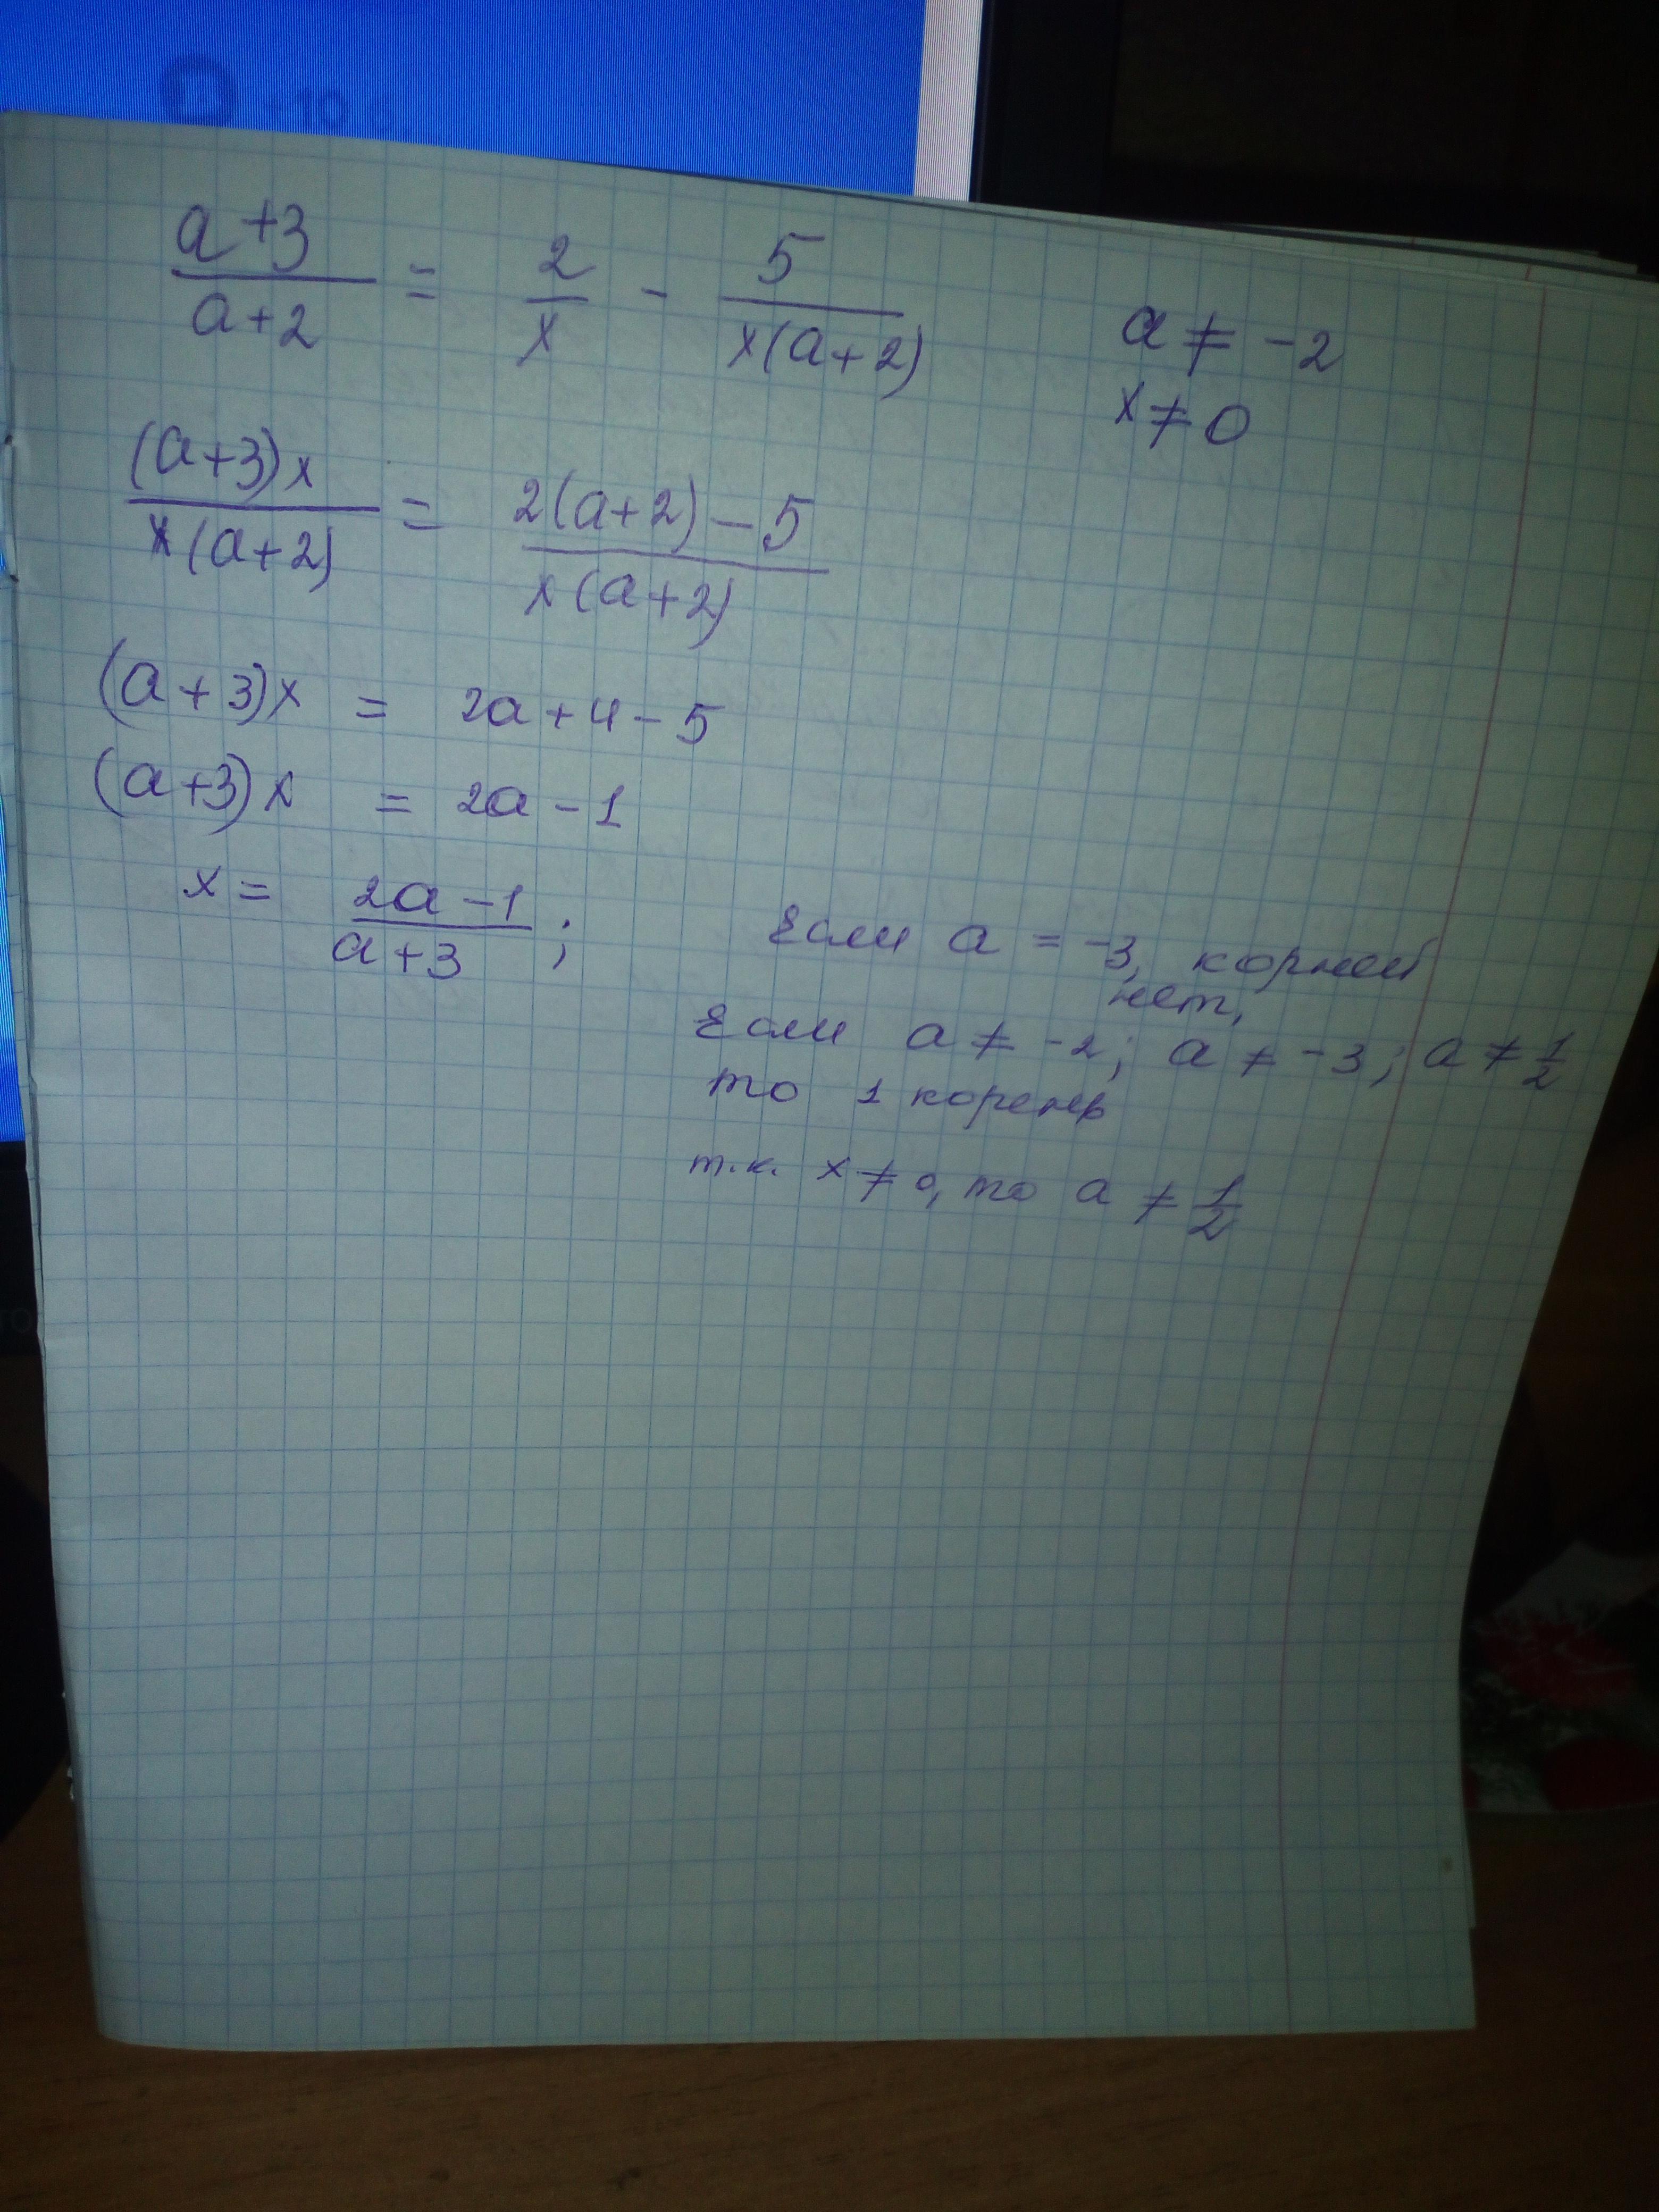 (a+3)/(a+2) = 2/x - 5/(x(a+2))
a ≠ -2
x ≠ 0
(a+3)x/(x(a+2)) = (2(a+2)-5)/(x(a+2))
(a+3)x = 2a+4-5
(a+3)x = 2a-1
x = (2a-1)/(a+3);
Если a = -3, корней
нет,
Если a ≠ -2; a ≠ -3; a ≠ 1/2
то 1 корень
т.к. x ≠ 0, то a ≠ 1/2